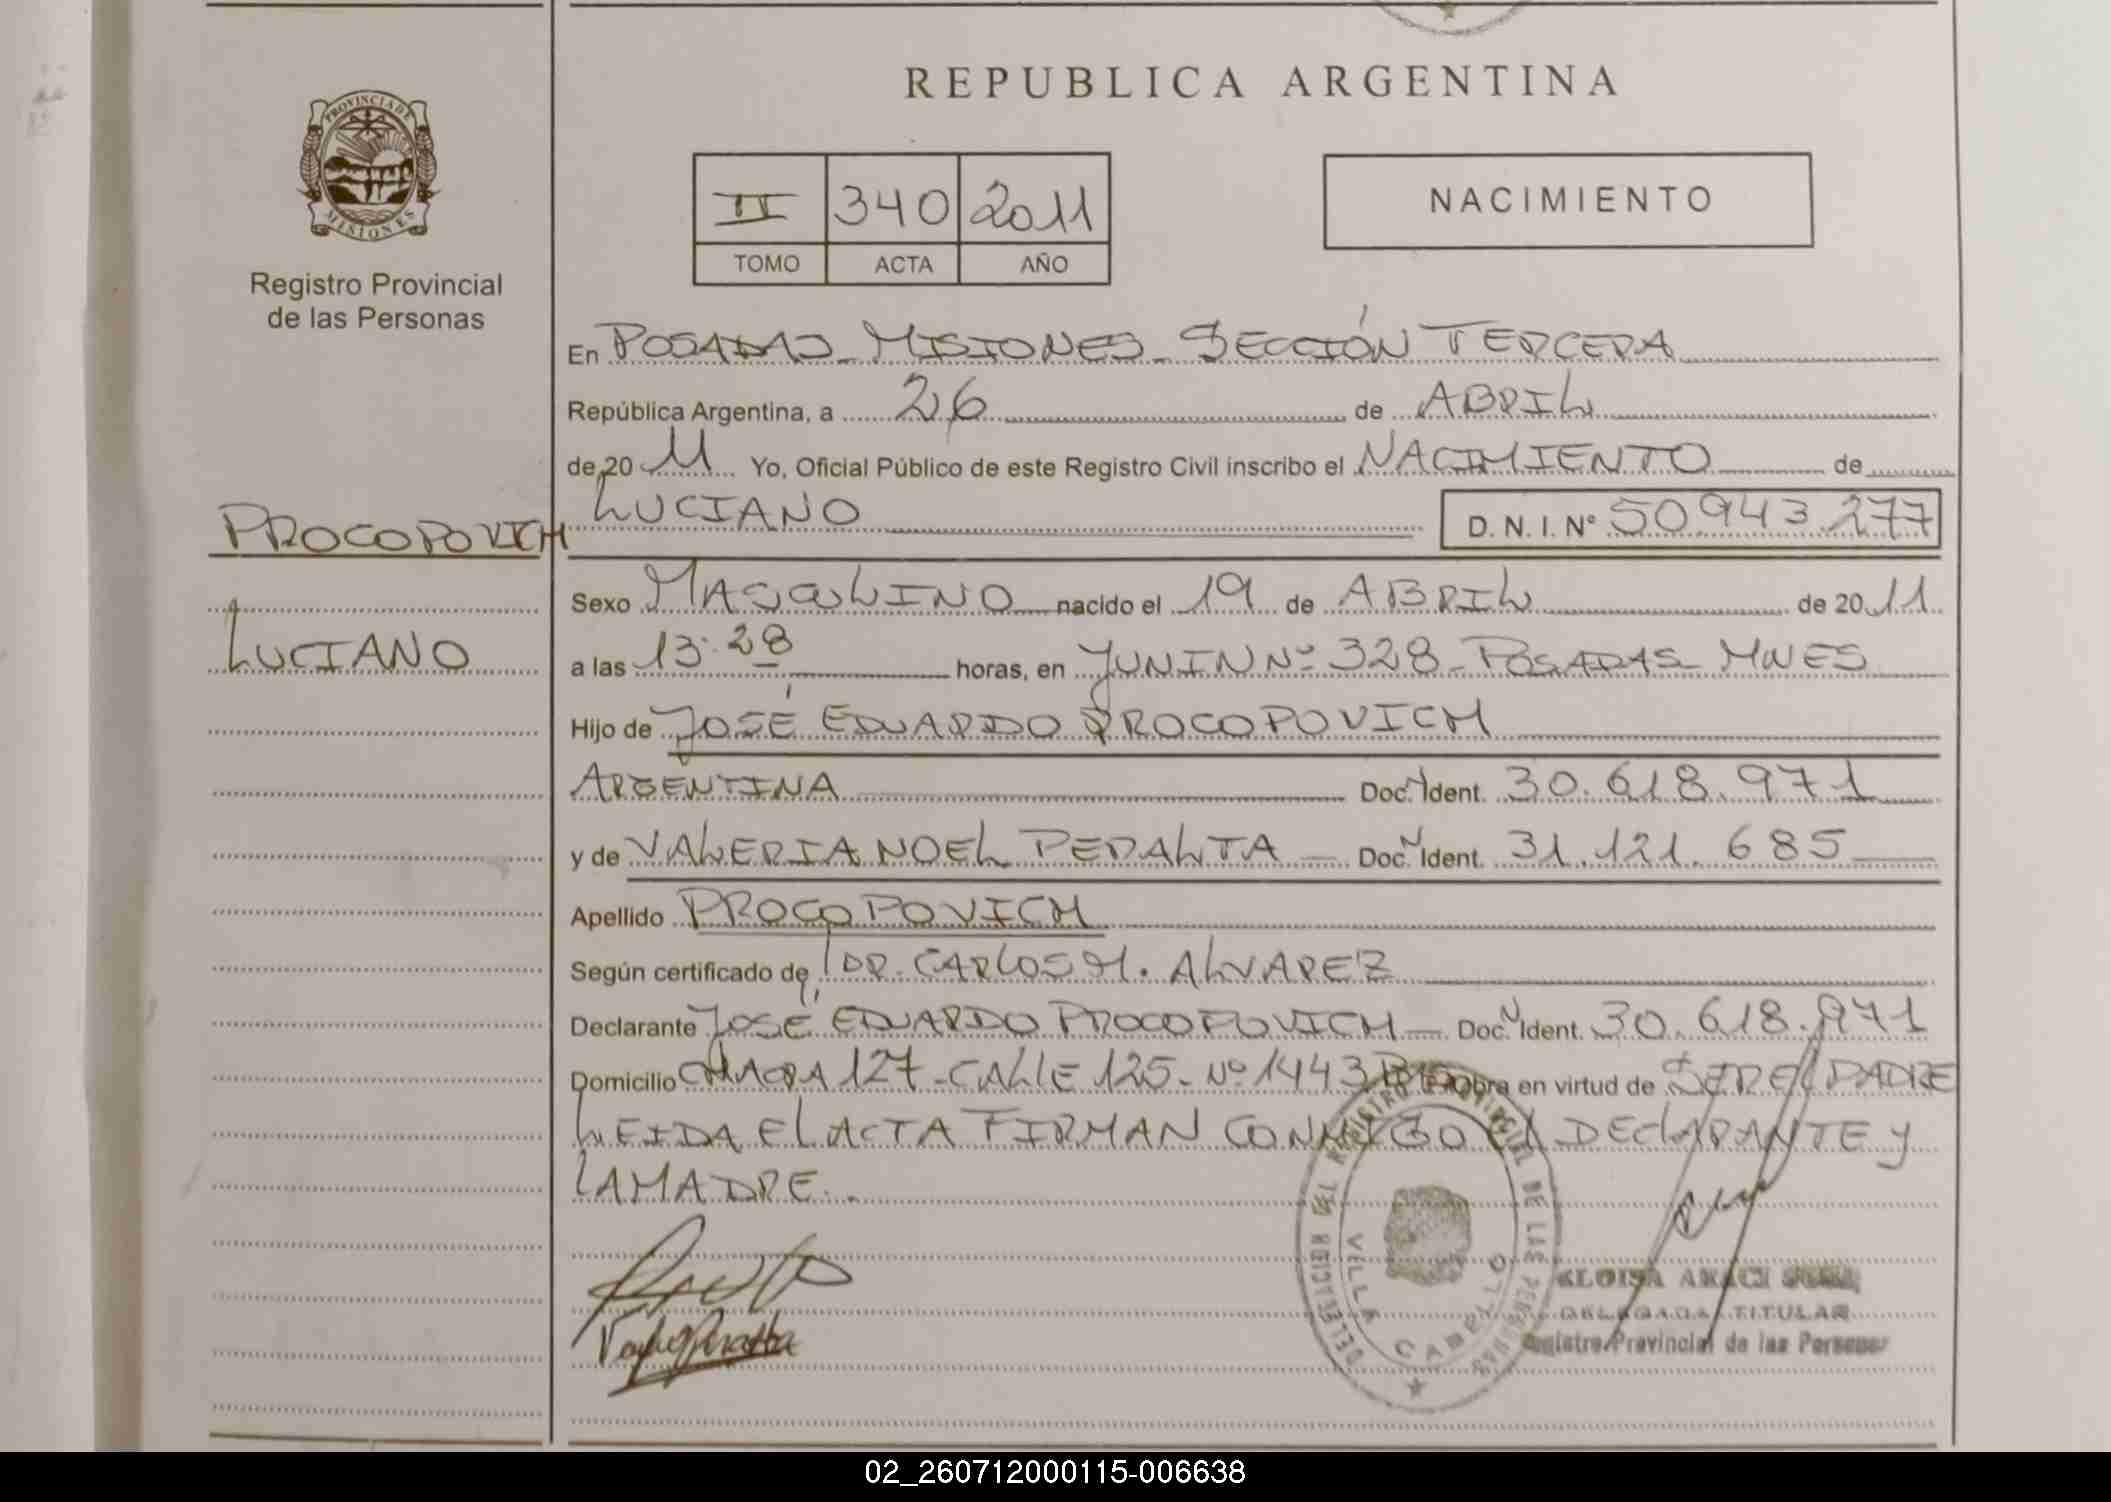 REPUBLICA ARGENTINA
PROVINCIA DE
MISIONES
Registro Provincial
de las Personas
II 340 2011
TOMO ACTA AÑO
NACIMIENTO
En POSADAS - MISIONES - SECCIÓN TERCERA
República Argentina, a 26 de ABRIL
de 20 11 Yo, Oficial Público de este Registro Civil inscribo el NACIMIENTO de
LUCIANO D. N. I. N° 50.943.277
PROCOPOVICH
LUCIANO
Sexo MASCULINO nacido el 19 de ABRIL de 20 11
a las 13:28 horas, en JUNIN Nº 328 - POSADAS - MNES
Hijo de JOSÉ EDUARDO PROCOPOVICH
ARGENTINA Doc. N Ident. 30.618.971
y de VALERIA NOEL PERALTA - Doc. N Ident. 31.121.685
Apellido PROCOPOVICH
Según certificado de DR. CARLOS M. ALVAREZ
Declarante JOSÉ EDUARDO PROCOPOVICH - Doc. N Ident. 30.618.971
Domicilio CHACRA 127 - CALLE 125 - Nº 1443 Obra en virtud de SER EL PADRE
LEIDA EL ACTA FIRMAN CONMIGO EL DECLARANTE Y
LA MADRE.
DELEGACION DEL REGISTRO PROVINCIAL DE LAS PERSONAS
VILLA CABELLO
ELOISA
DELEGADA TITULAR
Registro Provincial de las Personas
02_260712000115-006638